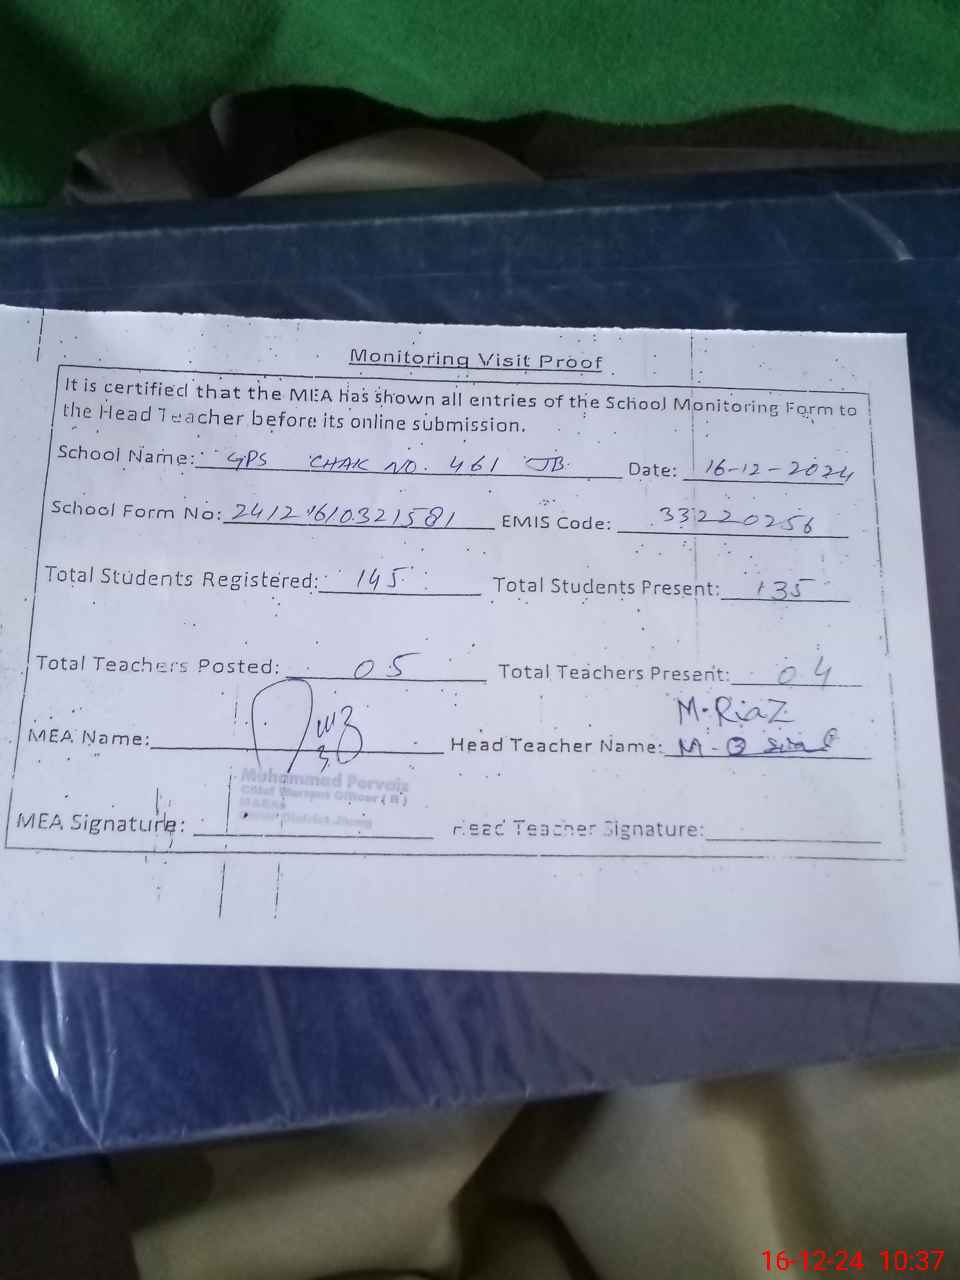 Monitoring Visit Proof
It is certified that the MEA has shown all entries of the School Monitoring Form to
the Head Teacher before its online submission.
School Name: GPS CHAK NO. 461 JB. Date: 16-12-2024
School Form No: 2412161032​1581 EMIS Code: 33220256
Total Students Registered: 145 Total Students Present: 135
Total Teachers Posted: 05 Total Teachers Present: 04
M. RiaZ
MEA Name: Head Teacher Name:
Muhammad Pervaiz
MEA Signature: Head Teacher Signature:
16-12-24 10:37